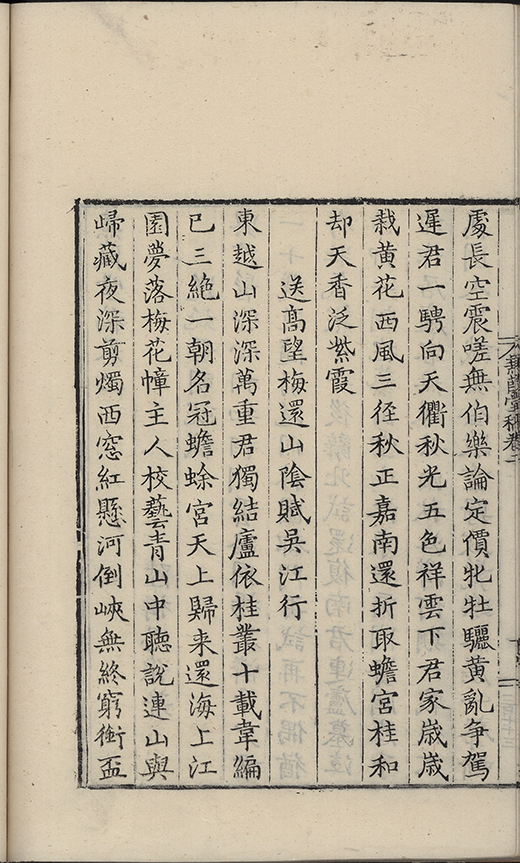 處長空震嗟無伯樂論定價牝牡驪黃亂争駕
遲君一騁向天衢秋光五色祥雲下君家歳歳
栽黄花西風三径秋正嘉南還折取蟾宮桂和
却天香泛紫霞
送髙望梅還山陰賦吴江行
東越山深深萬重君獨結廬依桂叢十載韋編
已三絶一朝名冠蟾蜍宮天上歸来還海上江
園夢落梅花幛主人校藝青山中聽説連山與
歸藏夜深剪燭西窓紅懸河倒峽無終窮銜盃